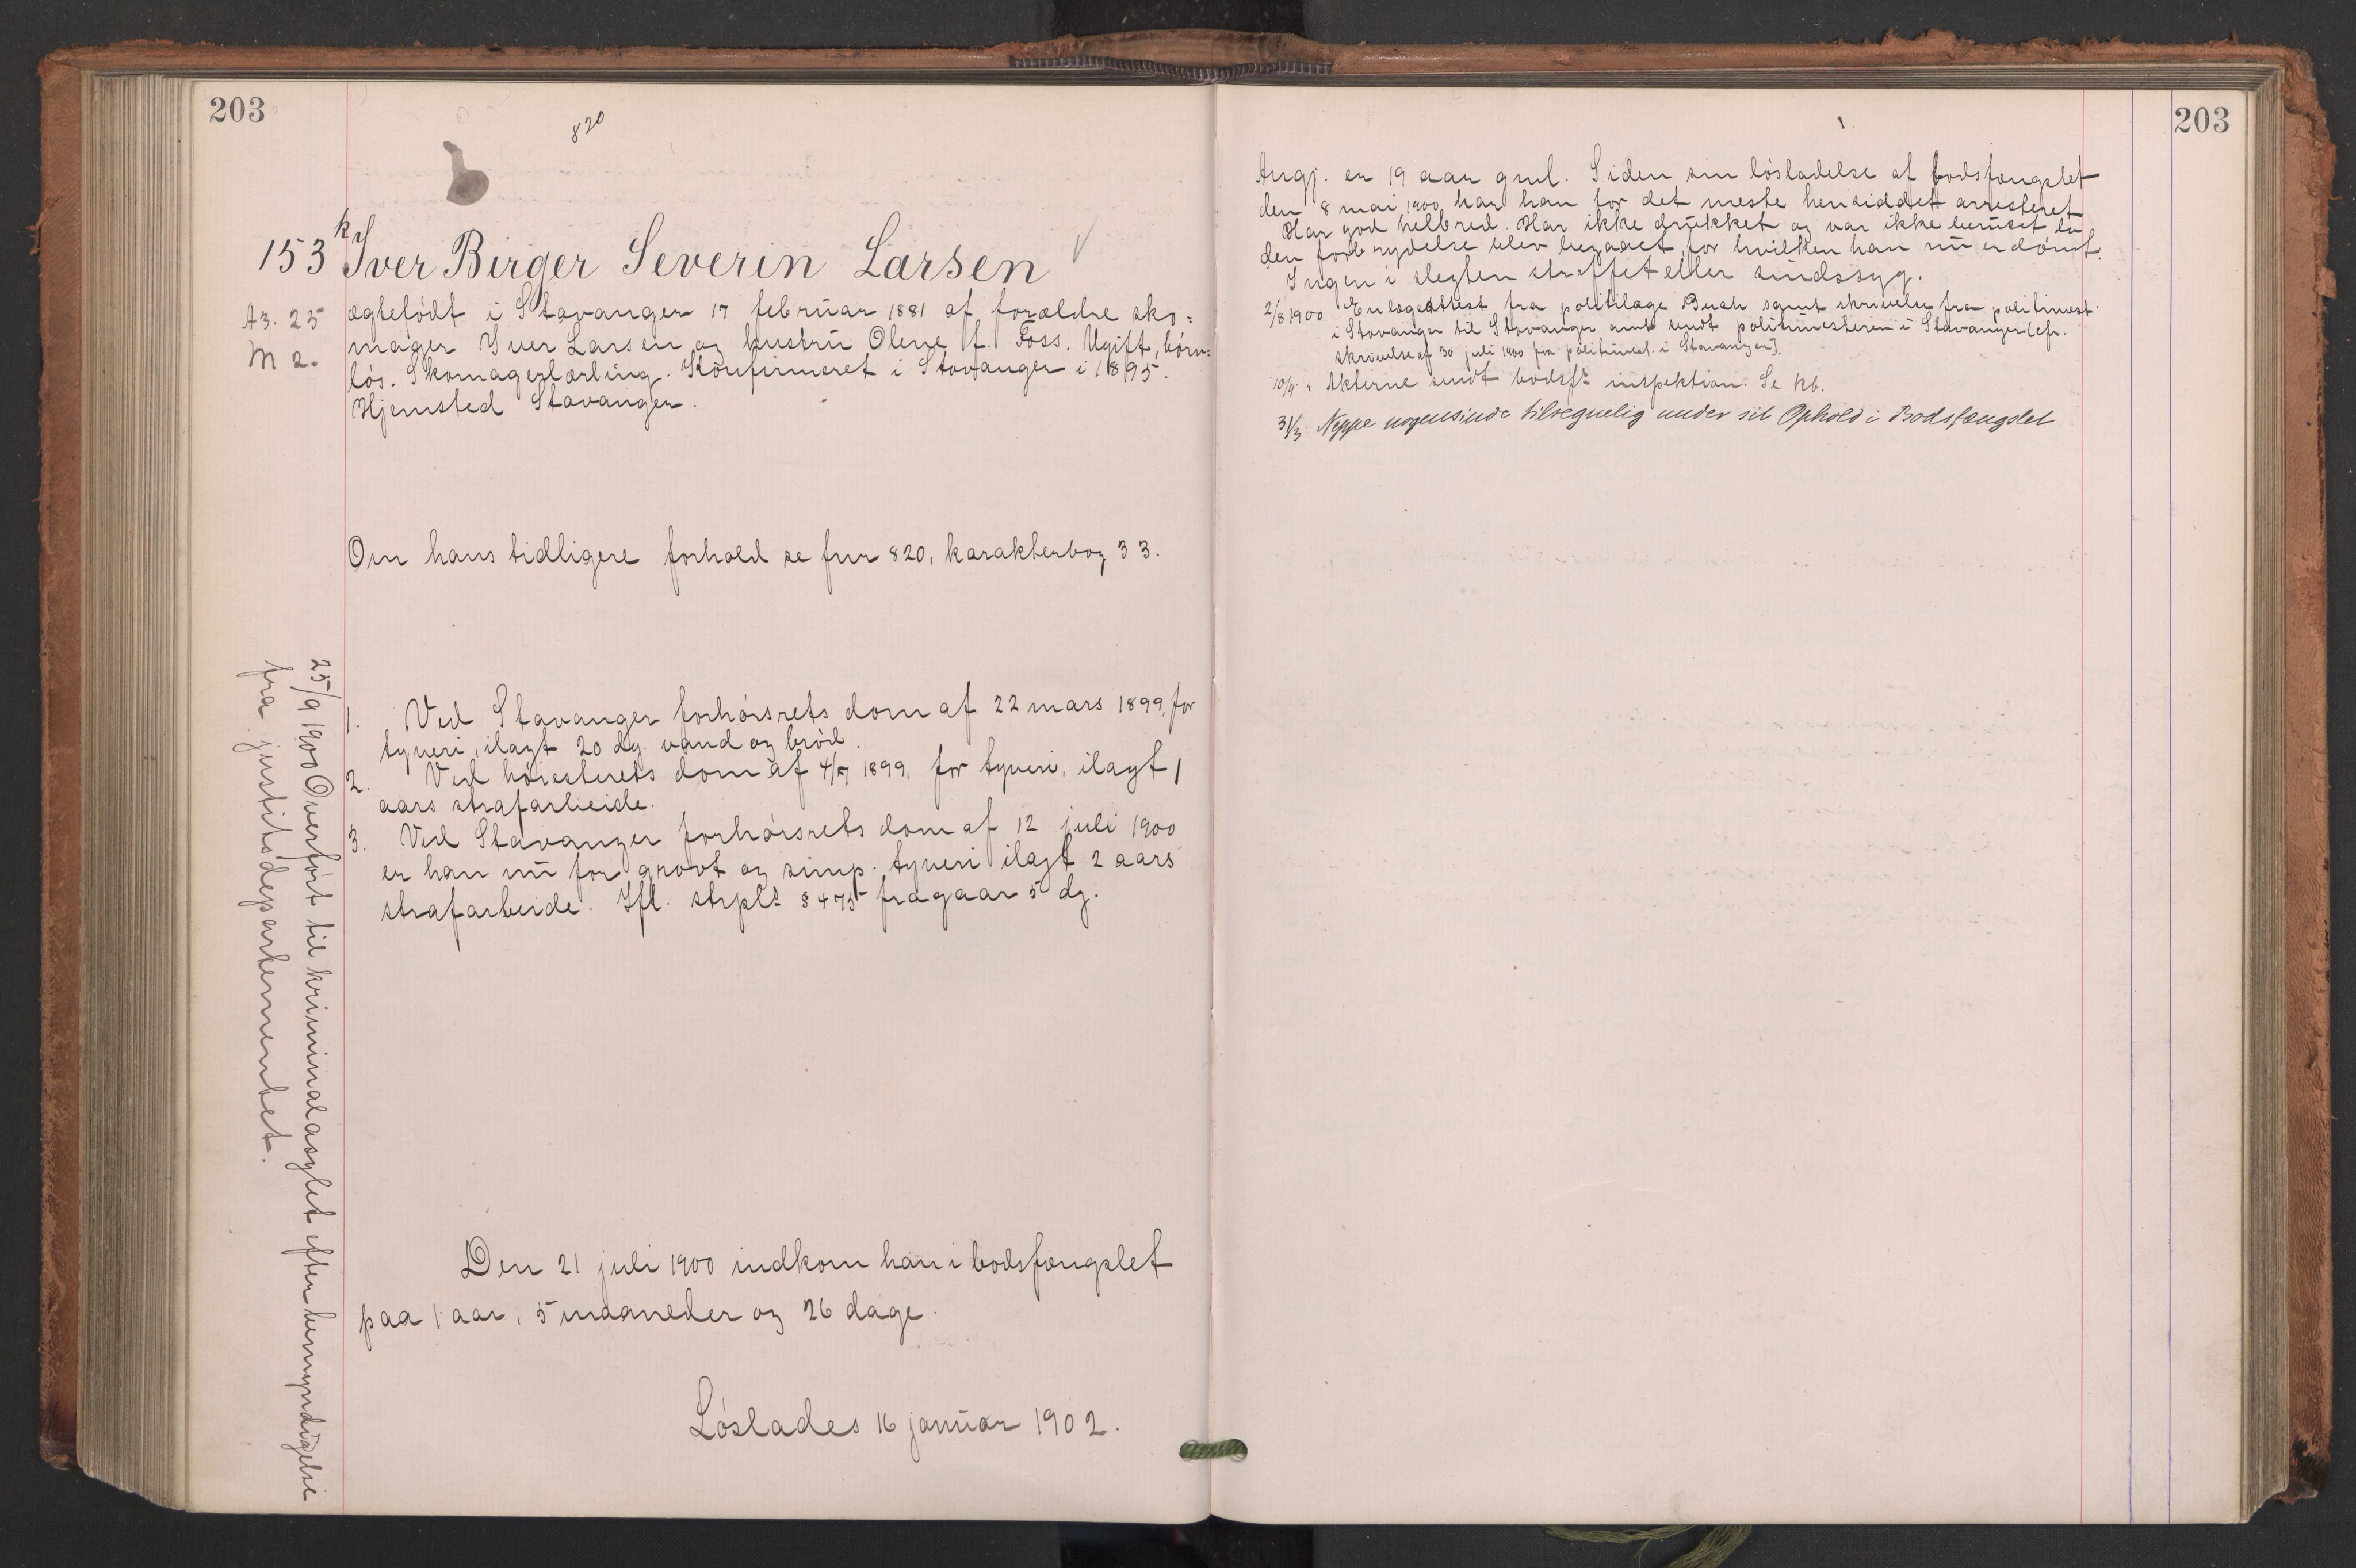 203
820
153 kr Iver Birger Severin Larsen
A3. 25
M 2.
ægtefödt i Stavanger 17 februar 1881 af forældre sko=
mager Iver Larsen og hustru Olene f. Foss. Ugift, börn=
lös. Skomagerlærling. Konfirmeret i Stavanger i 1895.
Hjemsted Stavanger.
Om hans tidligere forhold se fnr 820, karakterbog 33.
1. Ved Stavanger forhörsrets dom af 22 mars 1899, for
tyveri, ilagt 20 dg. vand og bröd.
2. Ved höiesterets dom af 4/7 1899, for tyveri, ilagt 1
aars strafarbeide.
3. Ved Stavanger forhörsrets dom af 12 juli 1900
er han nu for grovt og simp. tyveri ilagt 2 aars
strafarbeide. Ifl. strpls § 475 fragaar 5 dg.
Den 21 juli 1900 indkom han i bodsfængslet
paa 1 aar, 5 maaneder og 26 dage.
Löslades 16 januar 1902.
25/9 1900 Overfört til kriminalasylet efter bemyndigelse
fra justitsdepartementet.
203
1.
Angj. er 19 aar gml. Siden sin lösladelse af bodsfængslet
den 8 mai 1900 har han for det meste hensiddet arresteret
Har god helbred. Har ikke drukket og var ikke beruset da
den forbrydelse blev begaaet for hvilken han nu er dömt.
Ingen i slegten straffet eller sindssyg.
2/8 1900 En lægeattest fra politilæge Buch samt skrivelse fra politimest.
i Stavanger til Stavanger amt sendt politimesteren i Stavanger (cfr.
skrivelse af 30 juli 1900 fra politimest. i Stavanger).
10/9 " Akterne sendt bodsfs inspektion. Se kb.
31/3 Neppe nogensinde tilregnelig under sit Ophold i Bodsfængslet